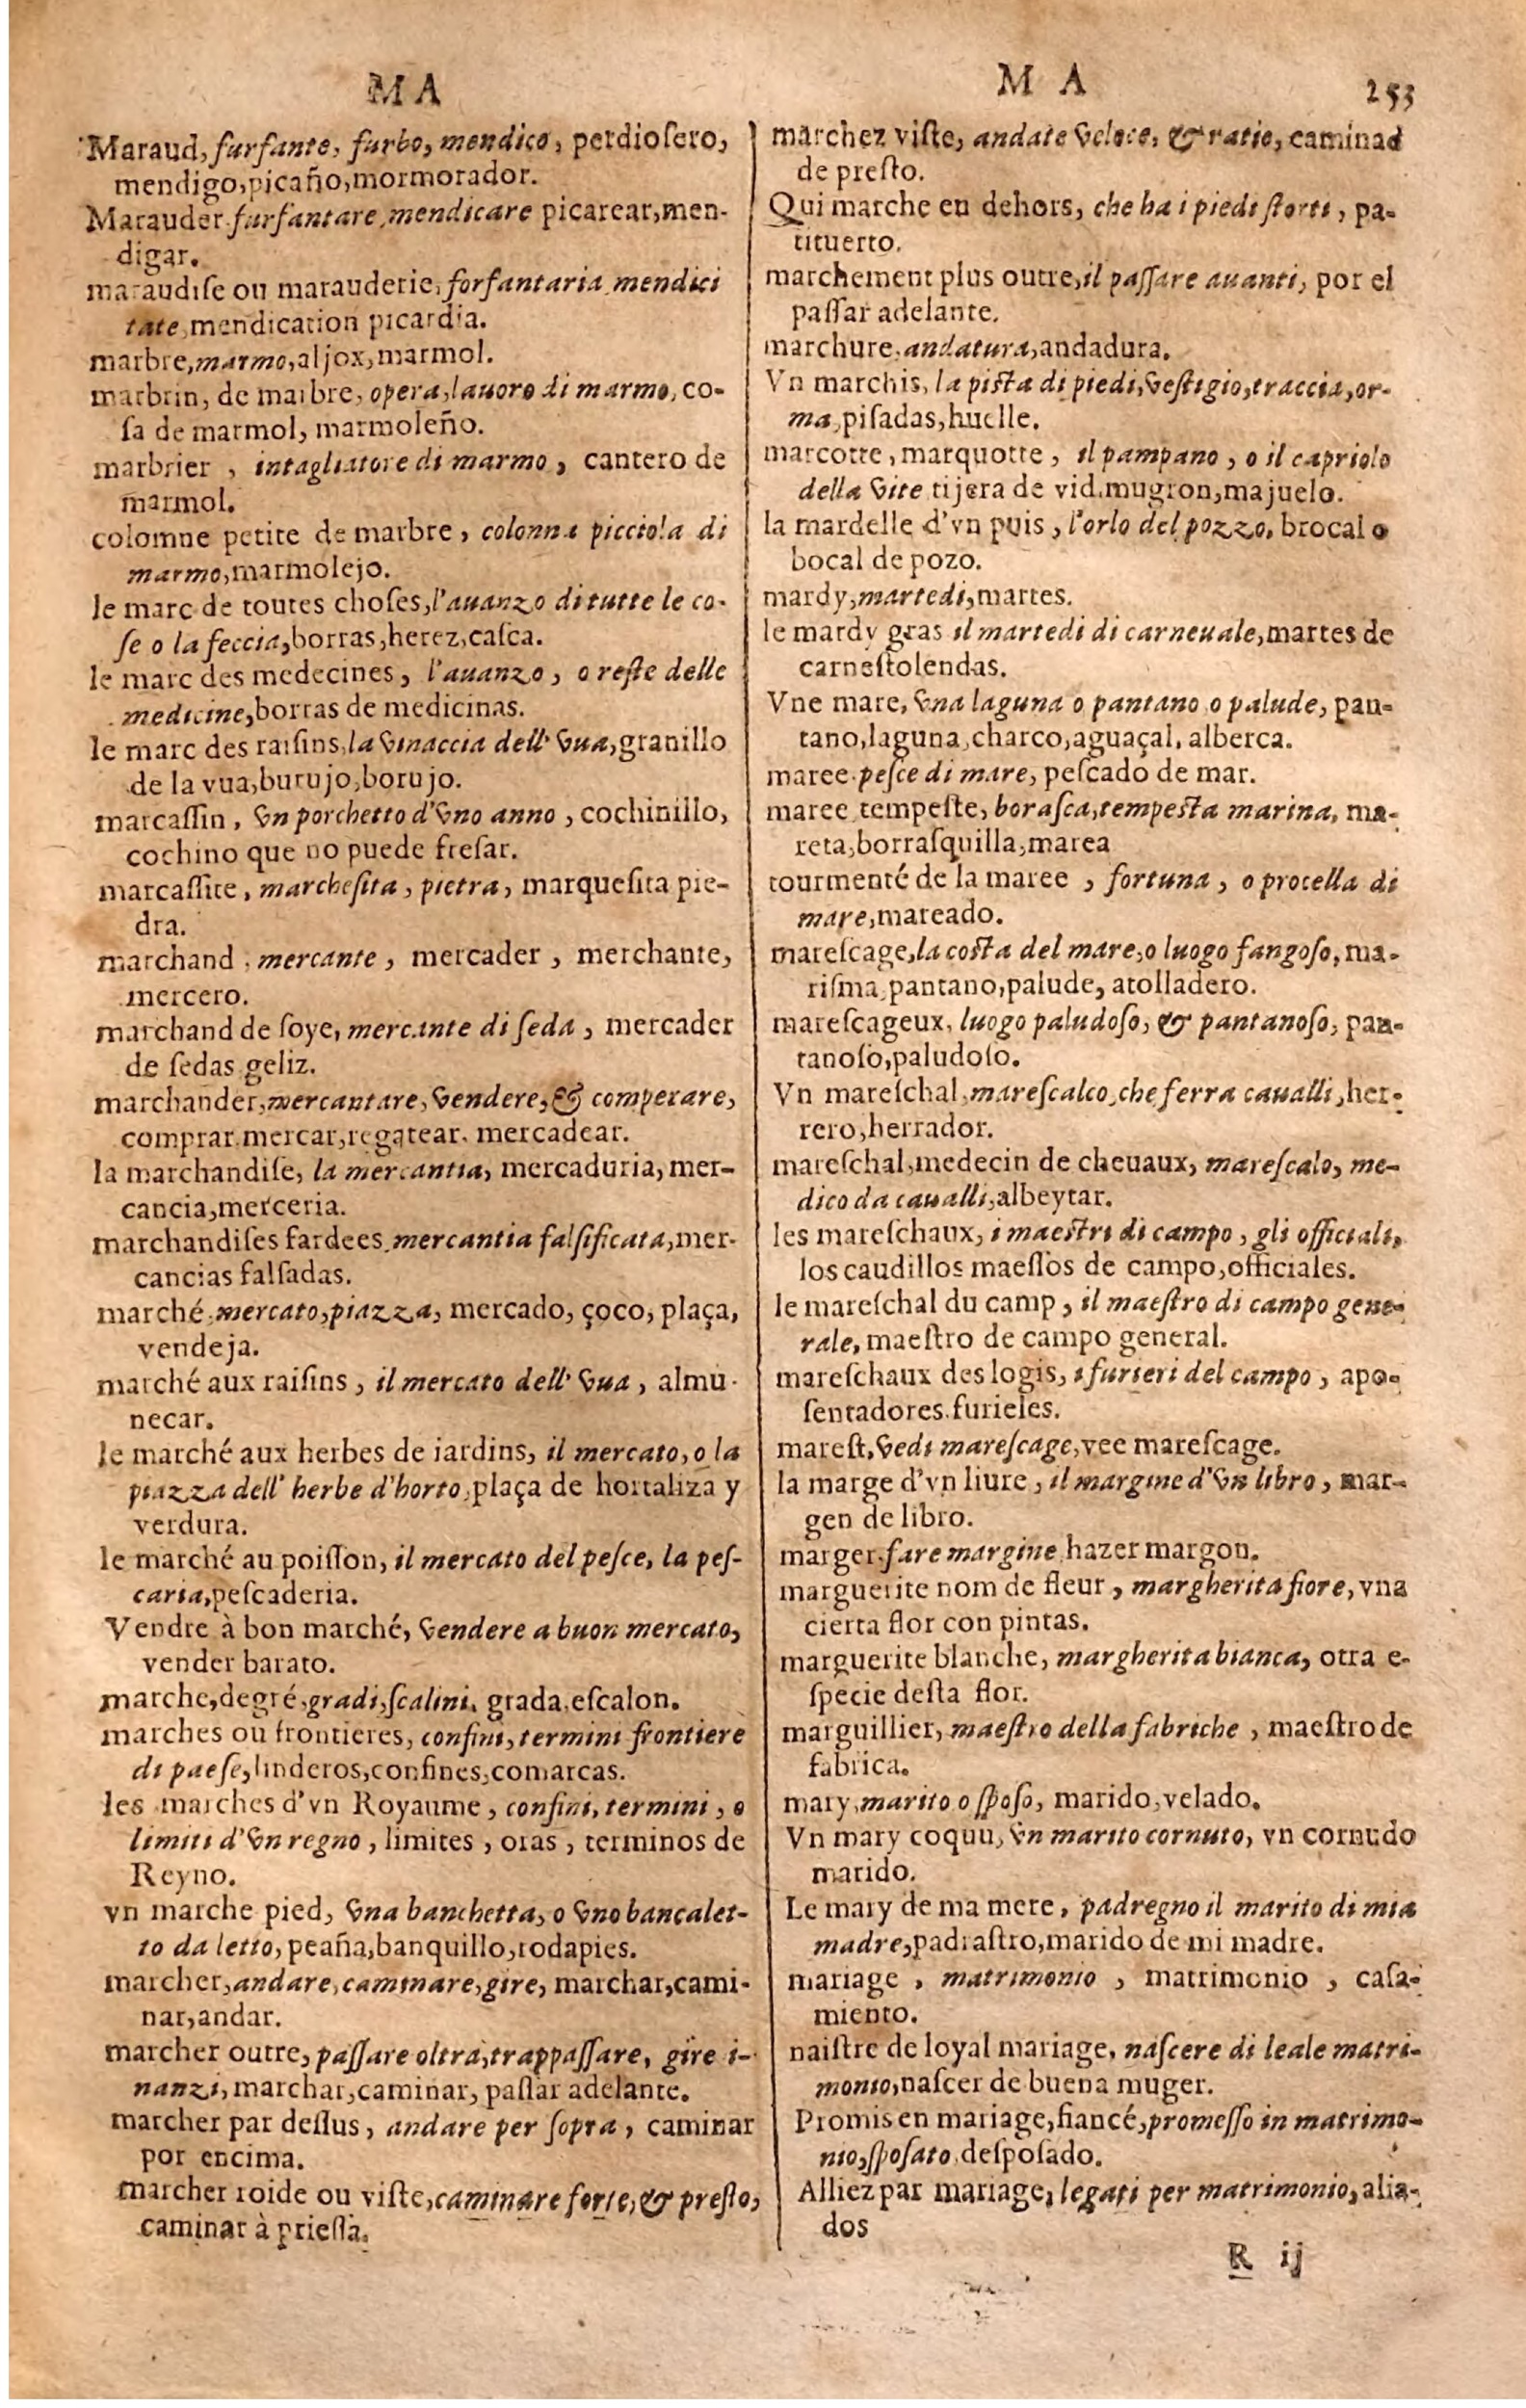 M A
Maraud, furfante, furbo, mendico, perdioſero,
mendigo, picaño, mormorador.
Marauder furfantare, mendicare picarear, men-
digar.
maraudiſe ou marauderie, forfantaria mendici
tate, mendication picardia.
marbre, marmo, aljox, marmol.
marbrin, de marbre, opera, lauoro di marmo, co-
ſa de marmol, marmoleño.
marbrier, intagliatore di marmo, cantero de
marmol.
colomne petite de marbre, colonna picciola di
marmo, marmolejo.
le marc de toutes choſes, l'auanzo di tutte le co-
ſe o la feccia, borras, herez, caſca.
le marc des medecines, l'auanzo, o reſte delle
medicine, borras de medicinas.
le marc des raiſins, la vinaccia dell' vua, granillo
de la vua, burujo, borujo.
marcaſſin, vn porchetto d'vno anno, cochinillo,
cochino que no puede freſar.
marcaſſite, marcheſita, pietra, marqueſita pie-
dra.
marchand, mercante, mercader, merchante,
mercero.
marchand de ſoye, mercante di ſeda, mercader
de ſedas geliz.
marchander, mercantare, vendere, & comperare,
comprar mercar, regatear, mercadear.
la marchandiſe, la mercantia, mercaduria, mer-
cancia, merceria.
marchandiſes fardees, mercantia falſificata, mer-
cancias falſadas.
marché, mercato, piazza, mercado, çoco, plaça,
vendeja.
marché aux raiſins, il mercato dell' vua, almu-
necar.
le marché aux herbes de iardins, il mercato, o la
piazza dell' herbe d'horto, plaça de hortaliza y
verdura.
le marché au poiſſon, il mercato del peſce, la peſ-
caria, peſcaderia.
Vendre à bon marché, vendere a buon mercato,
vender barato.
marche, degré, gradi, ſcalini, grada, eſcalon.
marches ou frontieres, confini, termini frontiere
di paeſe, linderos, confines, comarcas.
les marches d'vn Royaume, confini, termini, o
limiti d'vn regno, limites, oras, terminos de
Reyno.
vn marche pied, vna banchetta, o vno bancalet-
to da letto, peaña, banquillo, rodapies.
marcher, andare, caminare, gire, marchar, cami-
nar, andar.
marcher outre, paſſare oltra, trappaſſare, gire i-
nanzi, marchar, caminar, paſſar adelante.
marcher par deſſus, andare per ſopra, caminar
por encima.
marcher roide ou viſte, caminare forte, & preſto,
caminar à prieſſa.
M A 253
marchez viſte, andate veloce, & ratio, caminad
de preſto.
Qui marche en dehors, che ha i piedi ſtorti, pa-
tituerto.
marchement plus outre, il paſſare auanti, por el
paſſar adelante.
marchure, andatura, andadura.
Vn marchis, la piſta di piedi, veſtigio, traccia, or-
ma, piſadas, huelle.
marcotte, marquotte, il pampano, o il capriolo
della vite tijera de vid, mugron, majuelo.
la mardelle d'vn puis, l'orlo del pozzo, brocal o
bocal de pozo.
mardy, martedi, martes.
le mardy gras il martedi di carneuale, martes de
carneſtolendas.
Vne mare, vna laguna o pantano o palude, pan-
tano, laguna, charco, aguaçal, alberca.
maree peſce di mare, peſcado de mar.
maree tempeſte, boraſca, tempeſta marina, ma-
reta, borraſquilla, marea
tourmenté de la maree, fortuna, o procella di
mare, mareado.
mareſcage, la coſta del mare, o luogo fangoſo, ma-
riſma, pantano, palude, atolladero.
mareſcageux, luogo paludoſo, & pantanoſo, pan-
tanoſo, paludoſo.
Vn mareſchal, mareſcalco, che ferra caualli, her-
rero, herrador.
mareſchal, medecin de cheuaux, mareſcalo, me-
dico da caualli, albeytar.
les mareſchaux, i maeſtri di campo, gli officiali,
los caudillos maeſſos de campo, officiales.
le mareſchal du camp, il maeſtro di campo gene-
rale, maeſtro de campo general.
mareſchaux des logis, i furieri del campo, apo-
ſentadores, furieles.
mareſt, vedi mareſcage, vee mareſcage.
la marge d'vn liure, il margine d'vn libro, mar-
gen de libro.
marger, fare margine, hazer margon.
marguerite nom de fleur, margherita fiore, vna
cierta flor con pintas.
marguerite blanche, margherita bianca, otra e-
ſpecie deſta flor.
marguillier, maeſtro della fabriche, maeſtro de
fabrica.
mary, marito o ſpoſo, marido, velado.
Vn mary coquu, vn marito cornuto, vn cornudo
marido.
Le mary de ma mere, padregno il marito di mia
madre, padraſtro, marido de mi madre.
mariage, matrimonio, matrimonio, caſa-
miento.
naiſtre de loyal mariage, naſcere di leale matri-
monio, naſcer de buena muger.
Promis en mariage, fiancé, promeſſo in matrimo-
nio, ſpoſato, deſpoſado.
Alliez par mariage, legati per matrimonio, alia-
dos
R ij